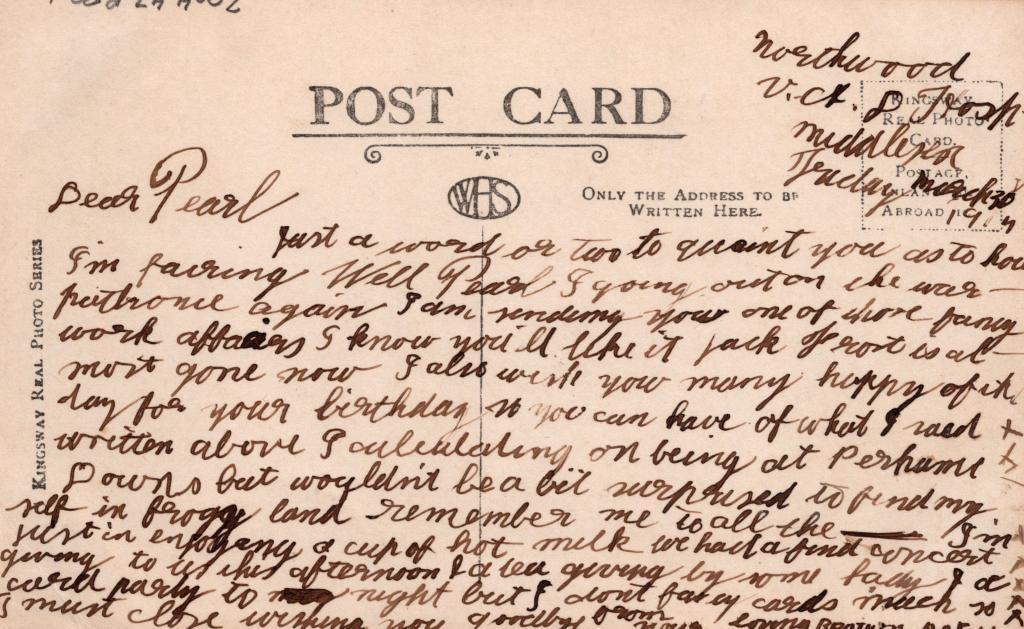 Northwood
V.A.D Hosp
Middlesex
Friday March 30
191
POST CARD
KINGSWAY
REAL PHOTO
CARD
POSTAGE,
INLAND
ABROAD 1
WHS
ONLY THE ADDRESS TO BE
WRITTEN HERE.
KINGSWAY REAL PHOTO SERIES
Dear Pearl
Just a word or two to quaint you as to how
I'm fairing Well Pearl I going out on the war
again I am sending you one of those fancy
work affairs I know you'll like it Jack Frost is al-
most gone now I also wish you many happy of th
day for your birthday so you can have of what I said
written above I calculating on being at Perhams
Downs but wouldn't be a bit surprised to find my
self in froggy land remember me to all the — I'm
just in enjoying a cup of hot milk we had a fine concert
giving to us this afternoon & a tea giving by some lady & a
card party to night but I dont fancy cards much so
I must close wishing you goodbye from your loving Brother